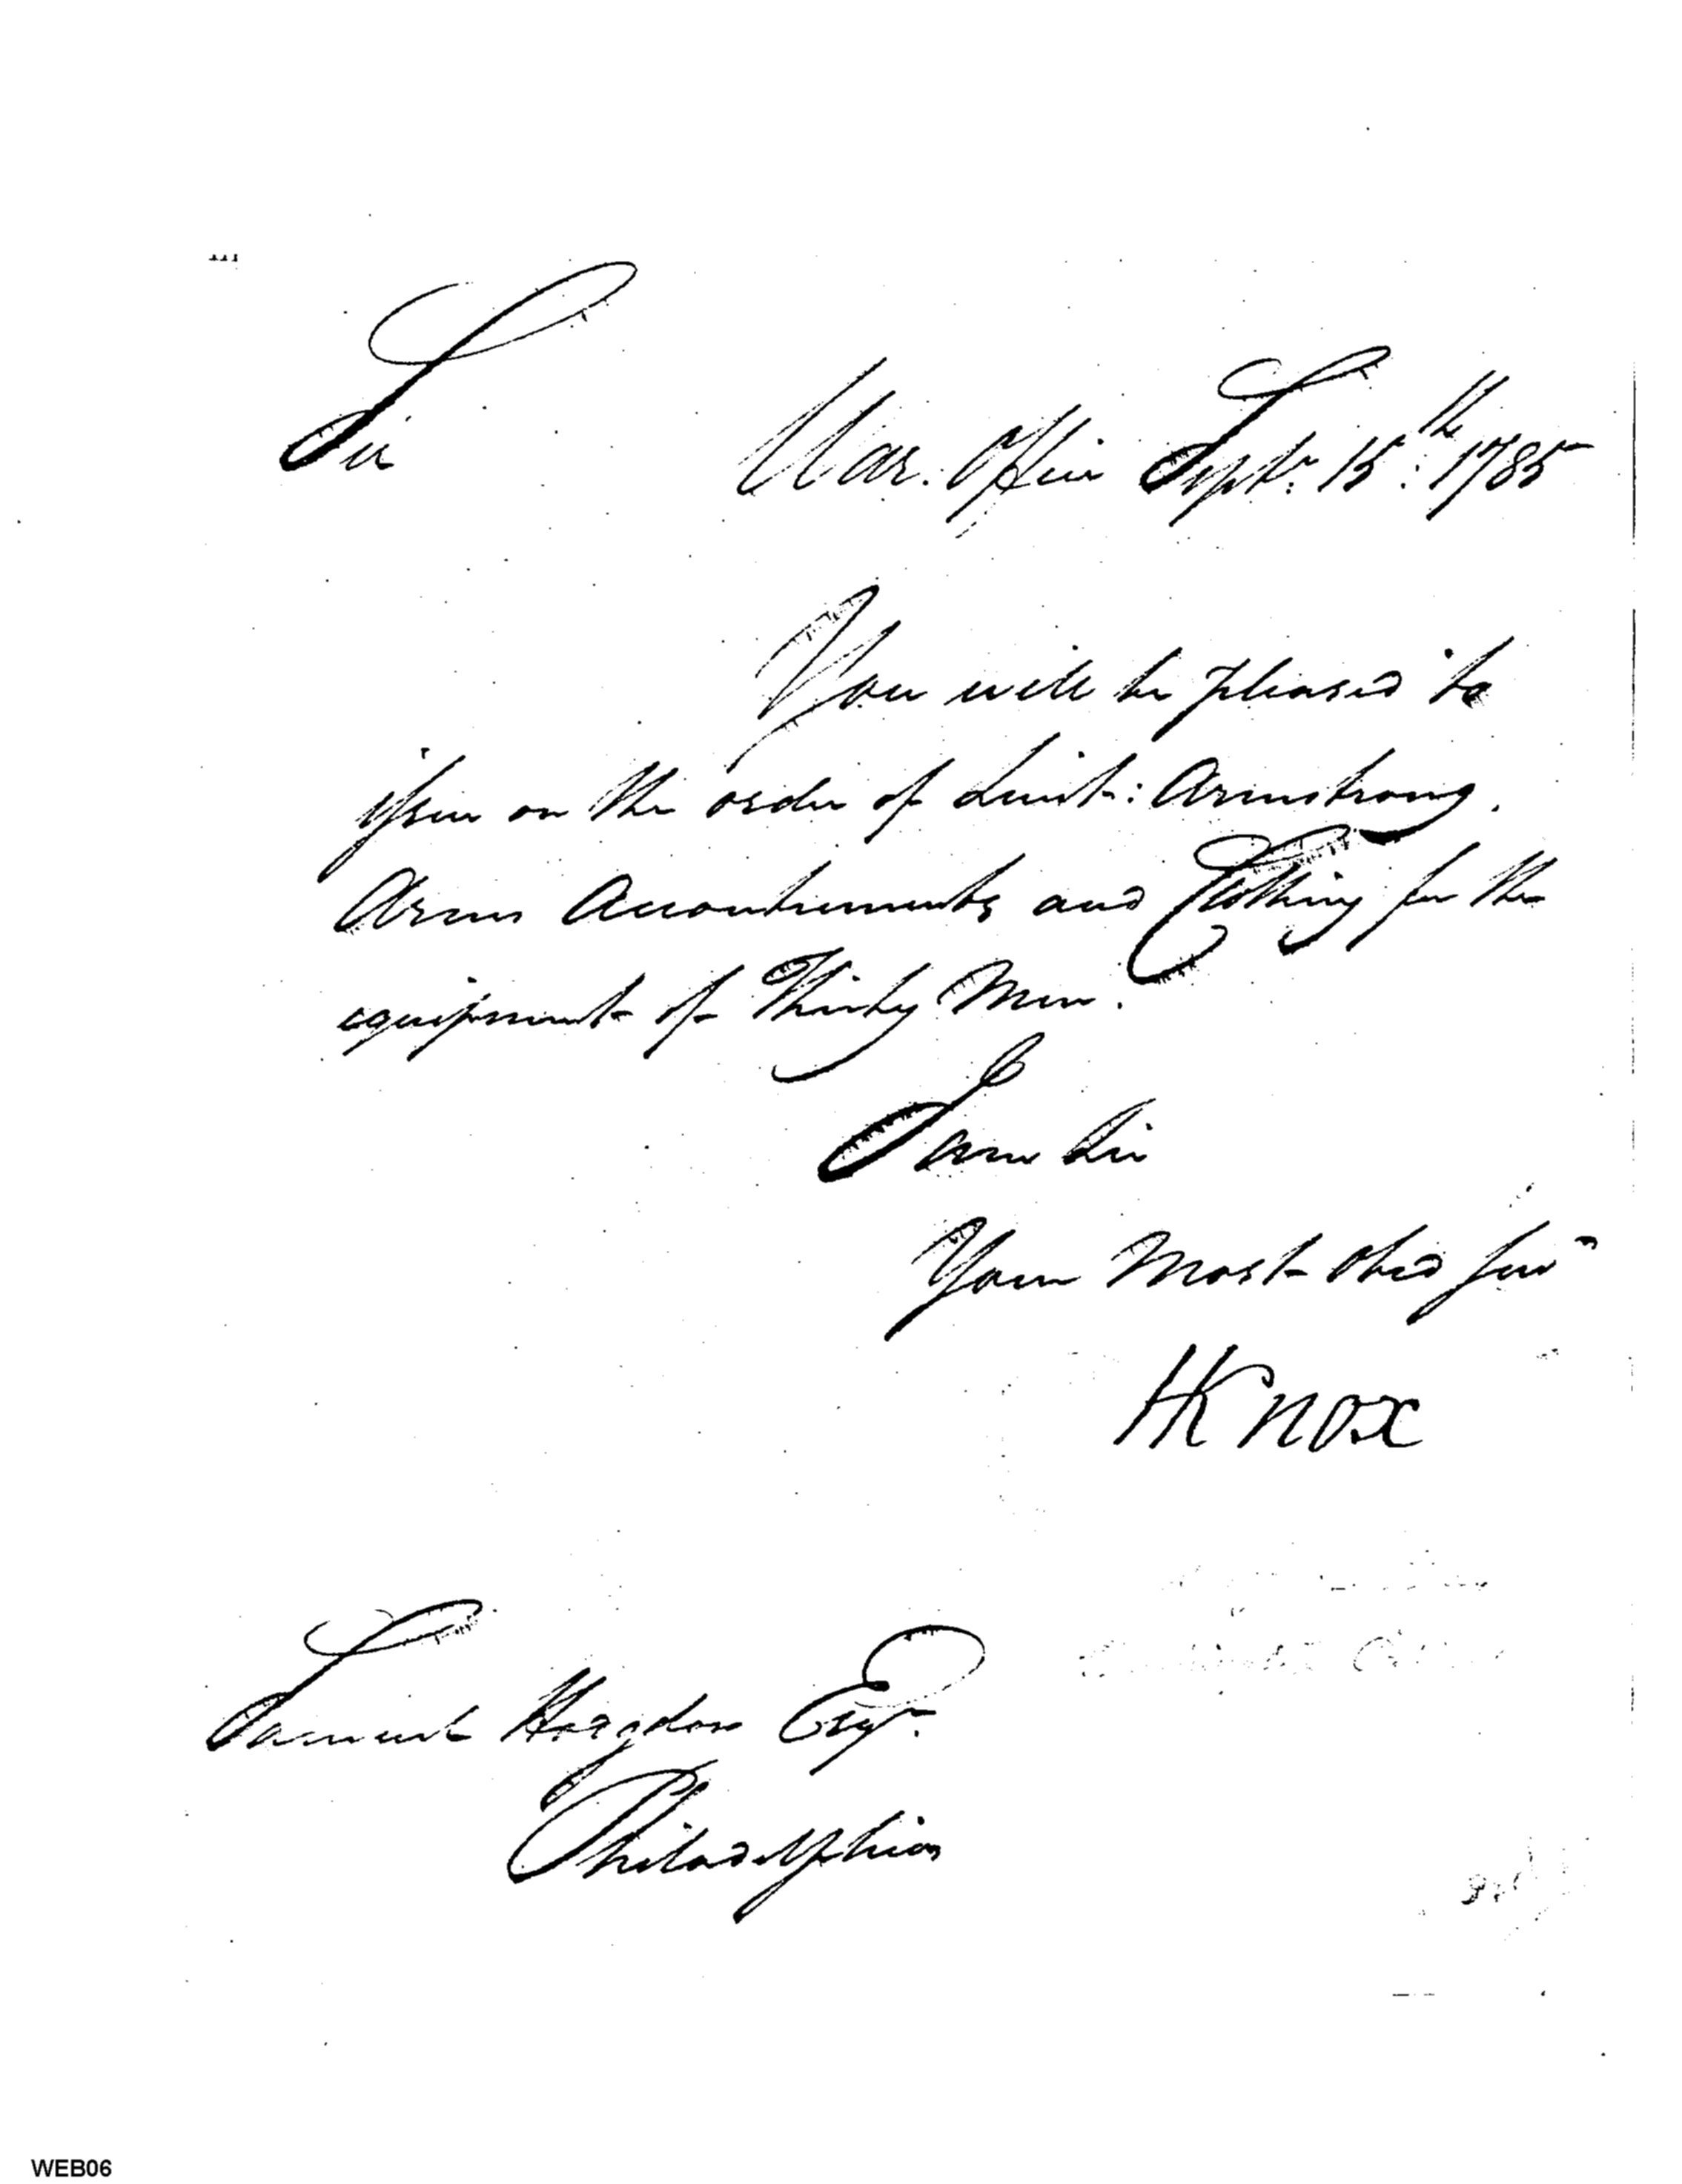 Sir
War. Office Sept: 15:th 1785
You will be pleased to
issue on the order of Lieut: Armstrong,
Arms Accoutrements and Clothing for the
equipment of Thirty Men.
I am Sir
Your Most Obed Serv
HKnox
Samuel Hogdon Esqr.
Philadelphia
WEB06